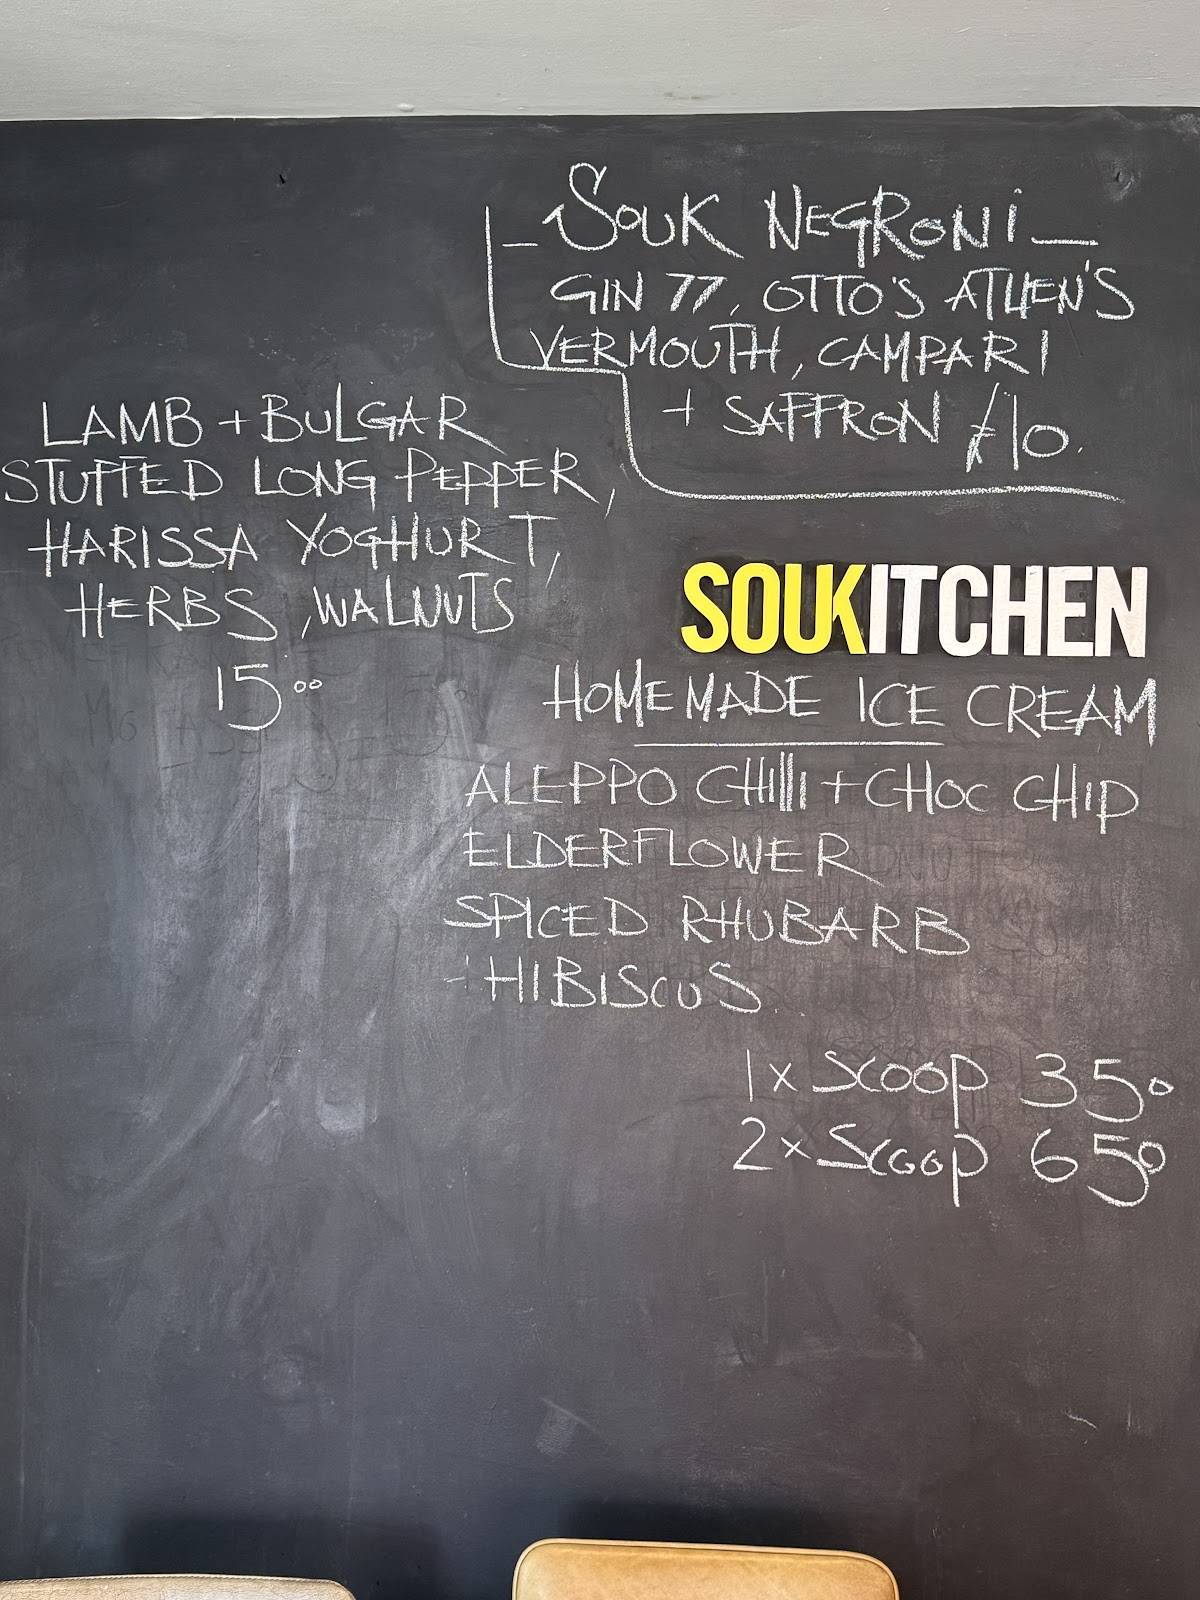 SOUK NEGRONI
GIN 77, OTTO'S ATHEN'S
VERMOUTH, CAMPARI
+ SAFFRON £10.
LAMB + BULGAR
STUFFED LONG PEPPER,
HARISSA YOGHURT,
HERBS, WALNUTS
15.00
SOUKITCHEN
HOMEMADE ICE CREAM
ALEPPO CHILLI + CHOC CHIP
ELDERFLOWER
SPICED RHUBARB
+ HIBISCUS
1x SCOOP 350
2x SCOOP 650